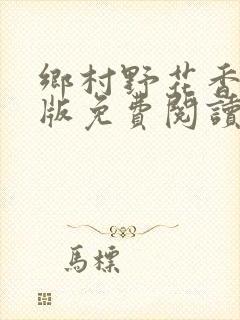 鄉村野花香
版免費閱讀
馬標